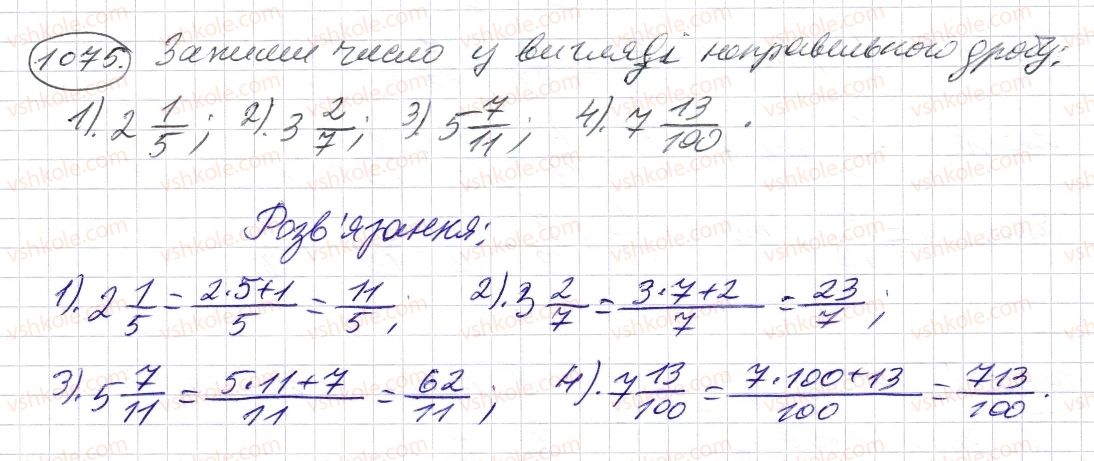 1075. Запиши число у вигляді неправильного дробу:
1). 2 1/5; 2). 3 2/7; 3) 5 7/11; 4). 7 13/100.
Розв'язання:
1). 2 1/5 = (2·5+1)/5 = 11/5; 2). 3 2/7 = (3·7+2)/7 = 23/7;
3). 5 7/11 = (5·11+7)/11 = 62/11; 4). 7 13/100 = (7·100+13)/100 = 713/100.